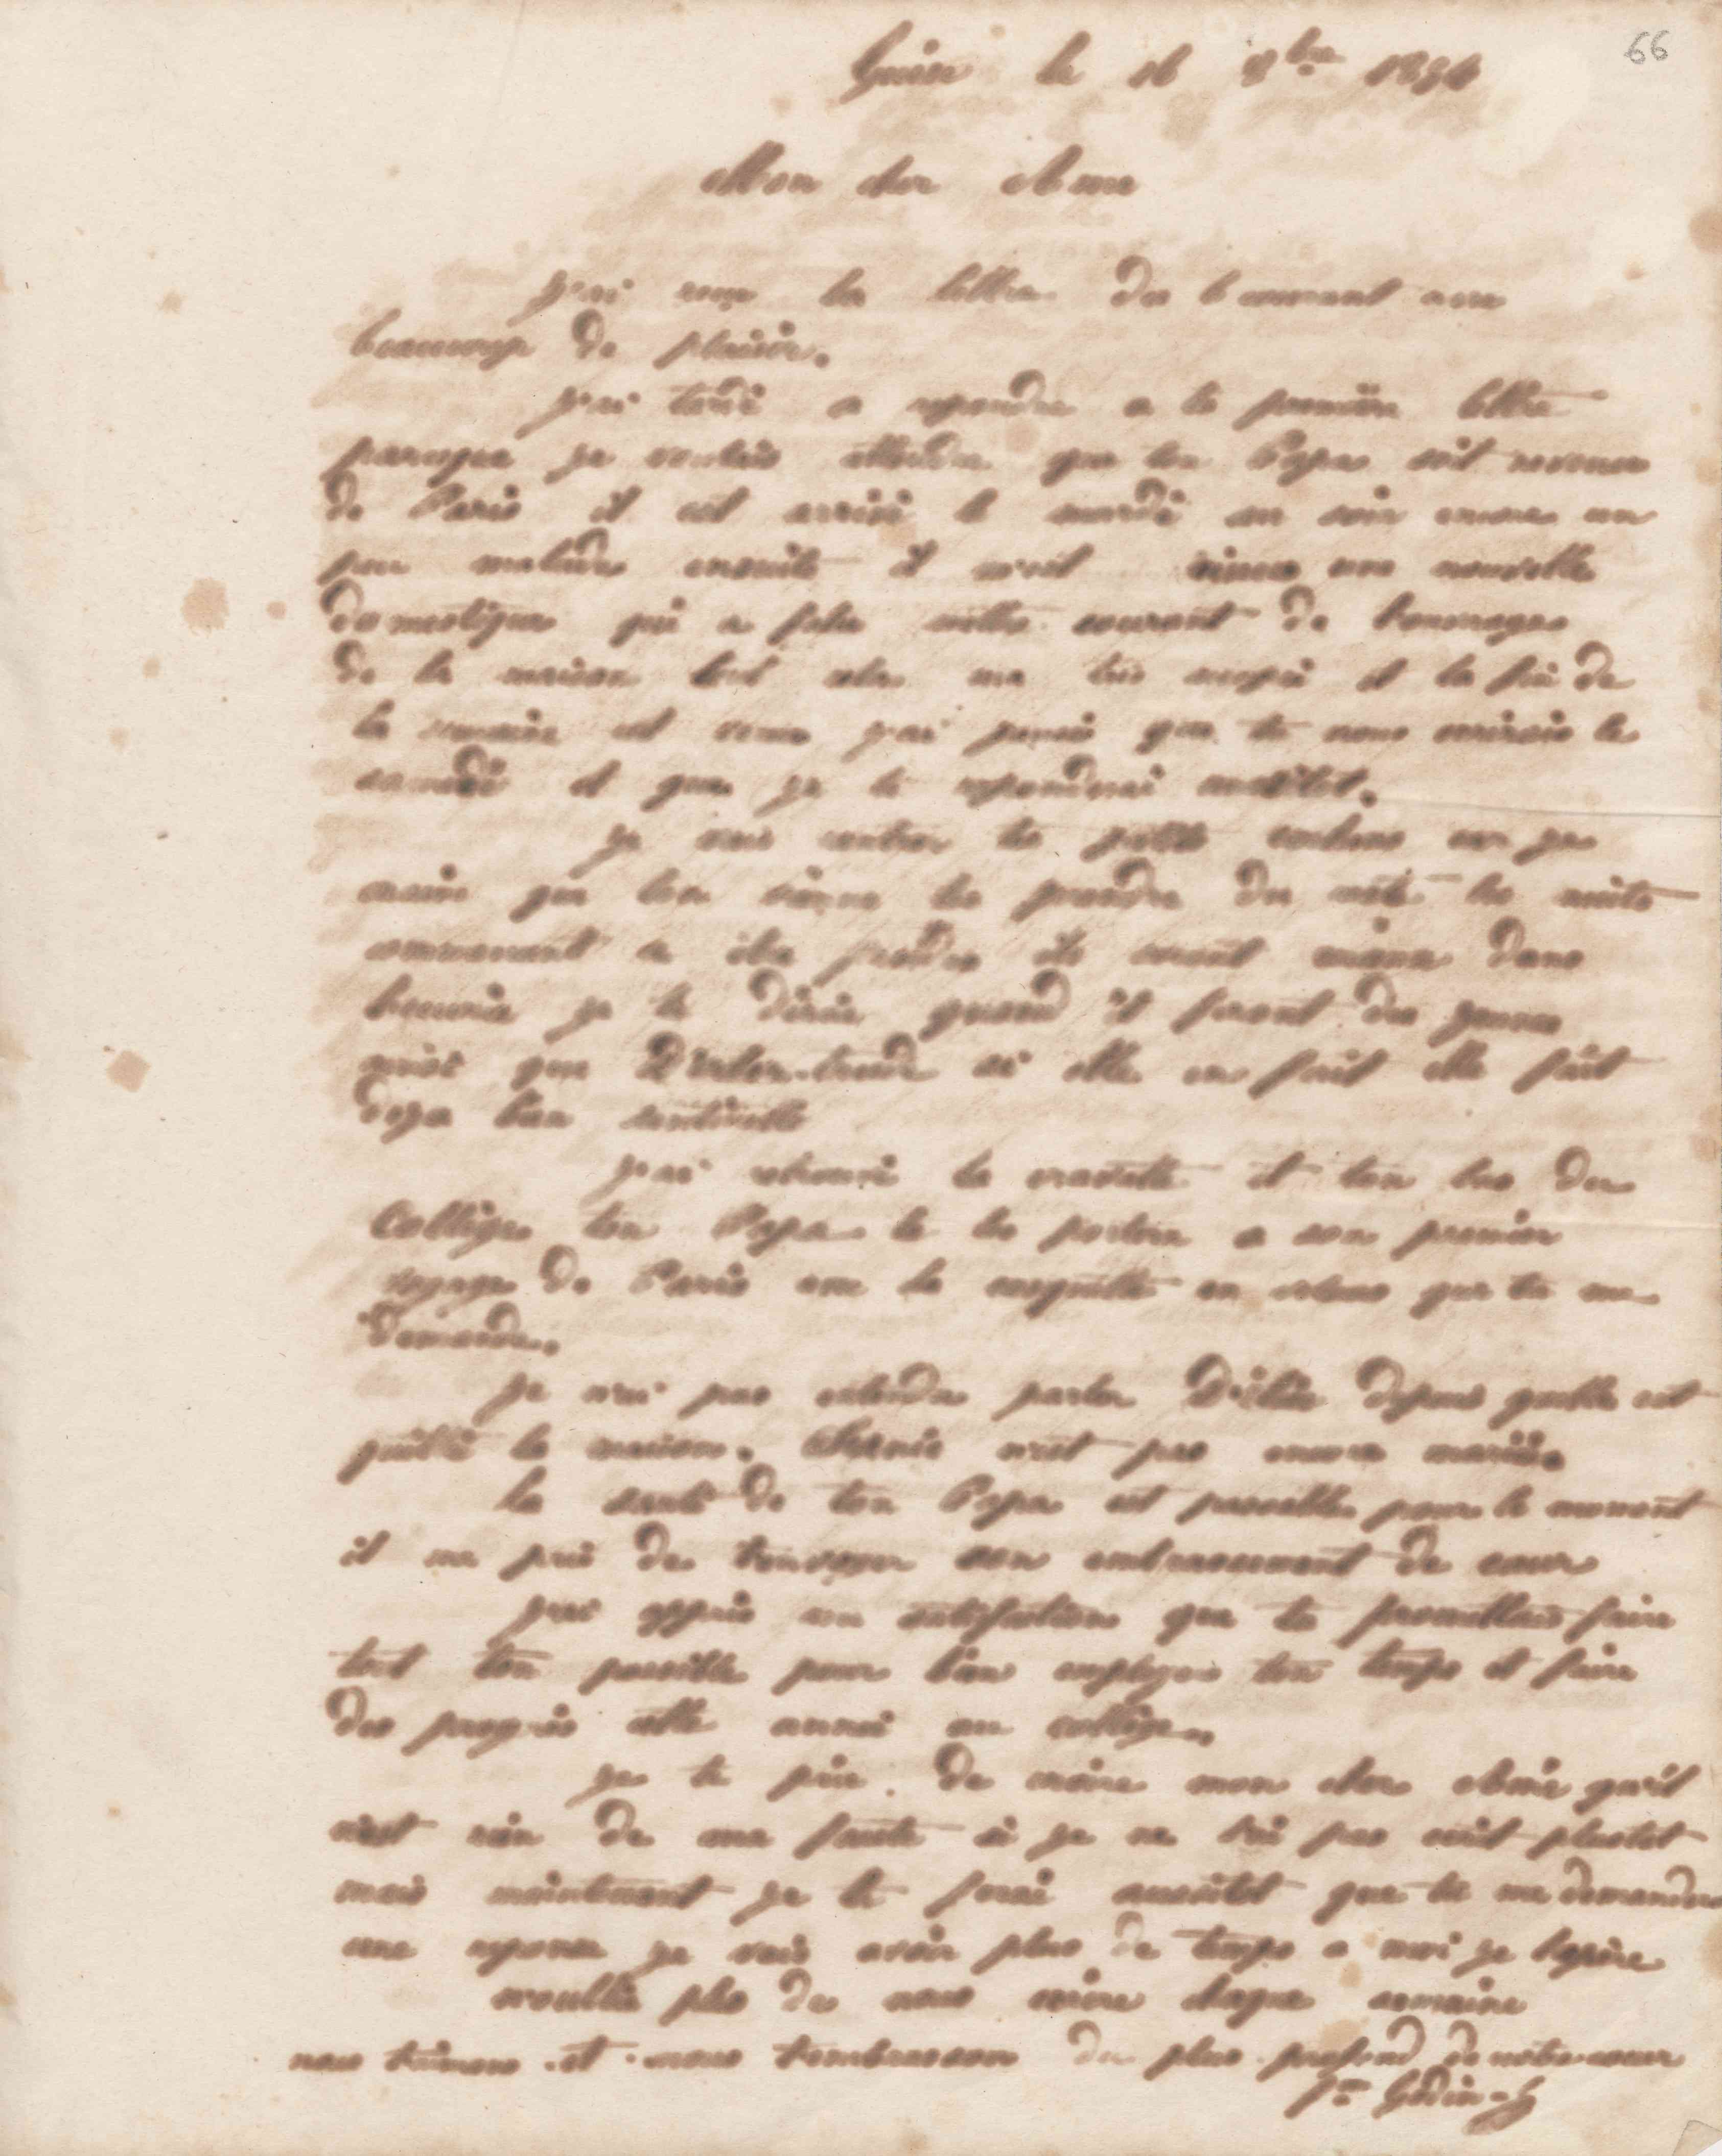 66
Guise le 16 8bre 1854
Mon cher Emile
J'ai reçu ta lettre du 6 courant avec
beaucoup de plaisir.
J'ai tardé a repondre a ta première lettre
parceque je voulais attendre que ton Papa soit revenu
de Paris il est arrivé le mardi au soir encore un
peu malade ensuite il m'est venu une nouvelle
domestique qui a falu mettre courant de l'ouvrage
de la maison tout cela ma tres occupé et la fin de
la semaine est venu j'ai pensé que tu nous ecrirais le
samedi et que je te reponderai aussitot.
Je vais rentrer tes petits car je
crains que l'on vienne les prendre du coté les nuits
commencent a être froides ils seront mieux dans
je te dirai quand il feront des jeunes
ainsi que si elle en fait elle fait
deja bien sentinelle
J'ai retrouvé ta cravatte et ton bas du
Collège ton Papa te les portera a son premier
voyage de Paris avec la casquette en velours que tu me
demande.
Je n'ai pas entendu parler depuis quelle est
quitté la maison. n'est pas encore mariée.
La santé de ton Papa est passable pour le moment
il me prie de t'envoyer son embrassement de coeur
J'ai appris avec satisfaction que tu promettais faire
tout ton possible pour bien employer ton temps et faire
des progrès cette année au collège.
Je te prie de croire mon cher Emile qu'il
n'est rien de ma faute si je ne t'ai pas ecrit plustot
mais maintenant je le ferai aussitot que tu me demandera
une reponse je vais avoir plus de temps a moi je l'espère
n'oublie plus de nous ecrire chaque semaine
nous t'aimons et nous t'embrassons du plus profond de notre coeur
fme Godin-L